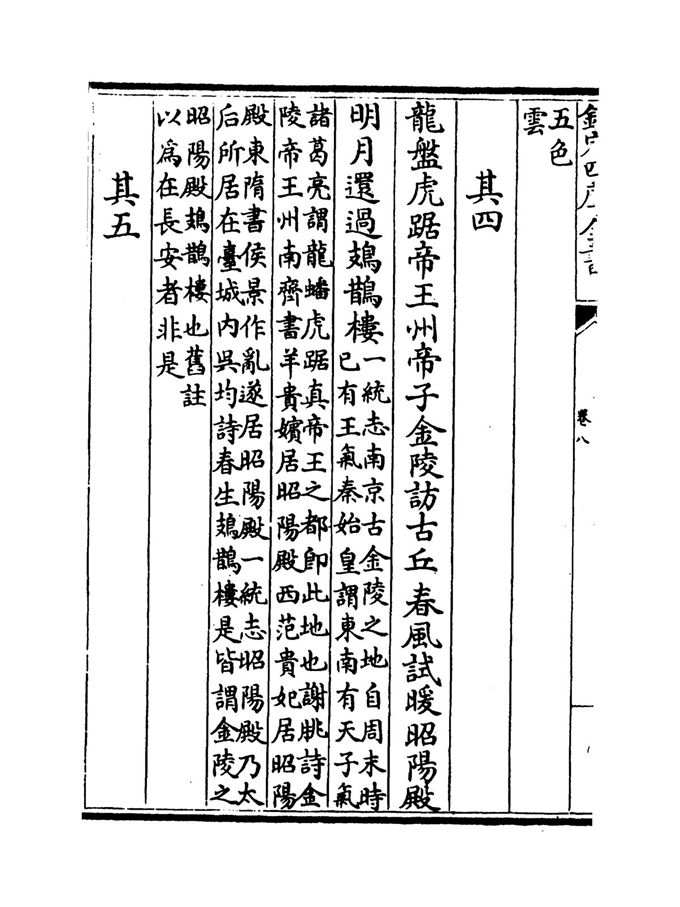 欽定四庫全書
卷八
五色
雲
其四
龍盤虎踞帝王州帝子金陵訪古丘春風試暖昭陽殿
明月還過鳷鵲樓
一統志南京古金陵之地自周末時
已有王氣秦始皇謂東南有天子氣
諸葛亮謂龍蟠虎踞真帝王之都即此地也謝朓詩金
陵帝王州南齊書羊貴嬪居昭陽殿西范貴妃居昭陽
殿東隋書侯景作亂遂居昭陽殿一統志昭陽殿乃太
后所居在臺城內吳均詩春生鳷鵲樓是皆謂金陵之
昭陽殿鳷鵲樓也舊註
以為在長安者非是
其五